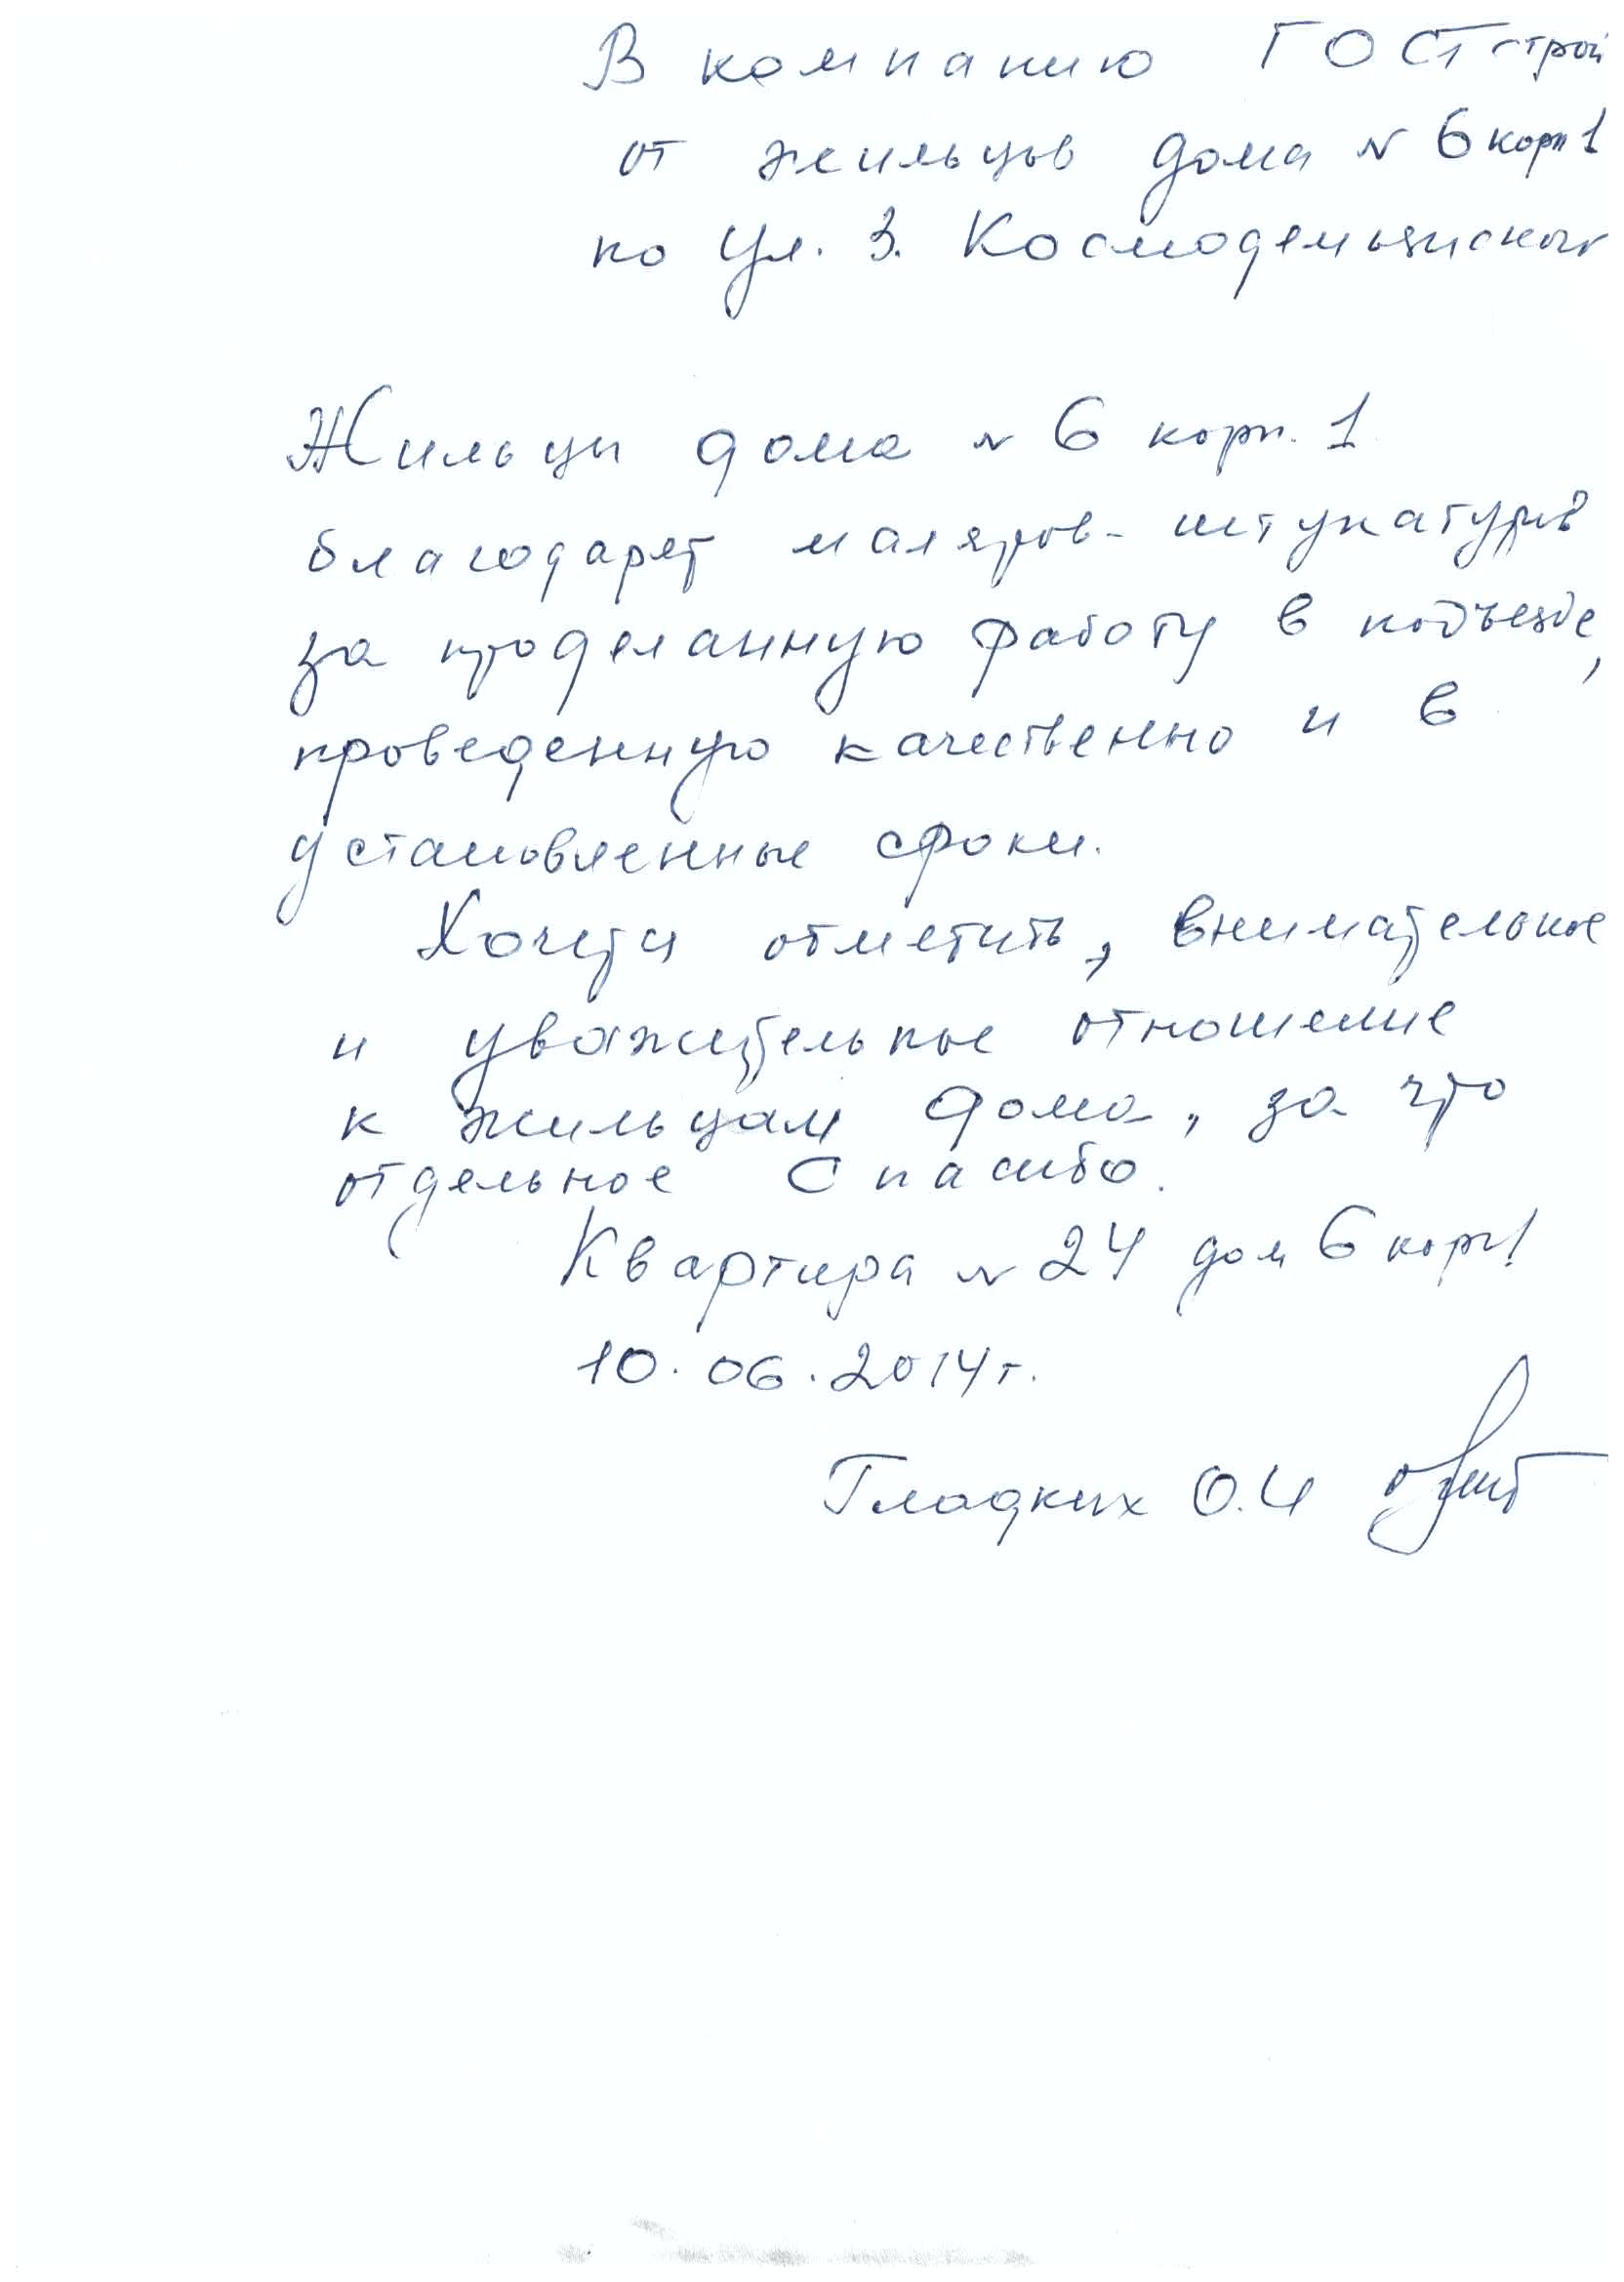 В компанию ГОСТстрой
от жильцов дома № 6 корп 1
по ул. З. Космодемьянских
Жильцы дома № 6 корп. 1
благодарят маляров-штукатуров
за проделанную работу в подъезде,
проведенную качественно и в
установленные сроки.
Хочется отметить, внимательное
и уважительное отношение
к жильцам дома, за что
отдельное Спасибо.
Квартира № 24 дом 6 корп 1
10.06.2014г.
Гладких О.И